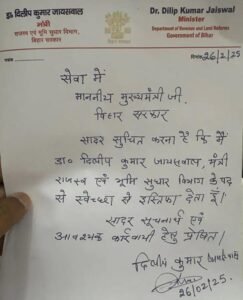 डा० दिलीप कुमार जायसवाल
मंत्री
राजस्व एवं भूमि सुधार विभाग,
बिहार सरकार
Dr. Dilip Kumar Jaiswal
Minister
Department of Revenue and Land Reforms
Government of Bihar
दिनांक 26/2/25
सेवा में
माननीय मुख्यमंत्री जी.
बिहार सरकार
सादर सुचित करना है कि मैं
डा० दिलीप कुमार जायसवाल, मंत्री
राजस्व एवं भूमि सुधार विभाग के पद
से स्वेच्छा से इस्तिफा देता हूँ।
सादर सूचनार्थ एवं
आवश्यक कार्रवाई हेतु प्रेषित।
दिलीप कुमार जायसवाल
26/02/25.